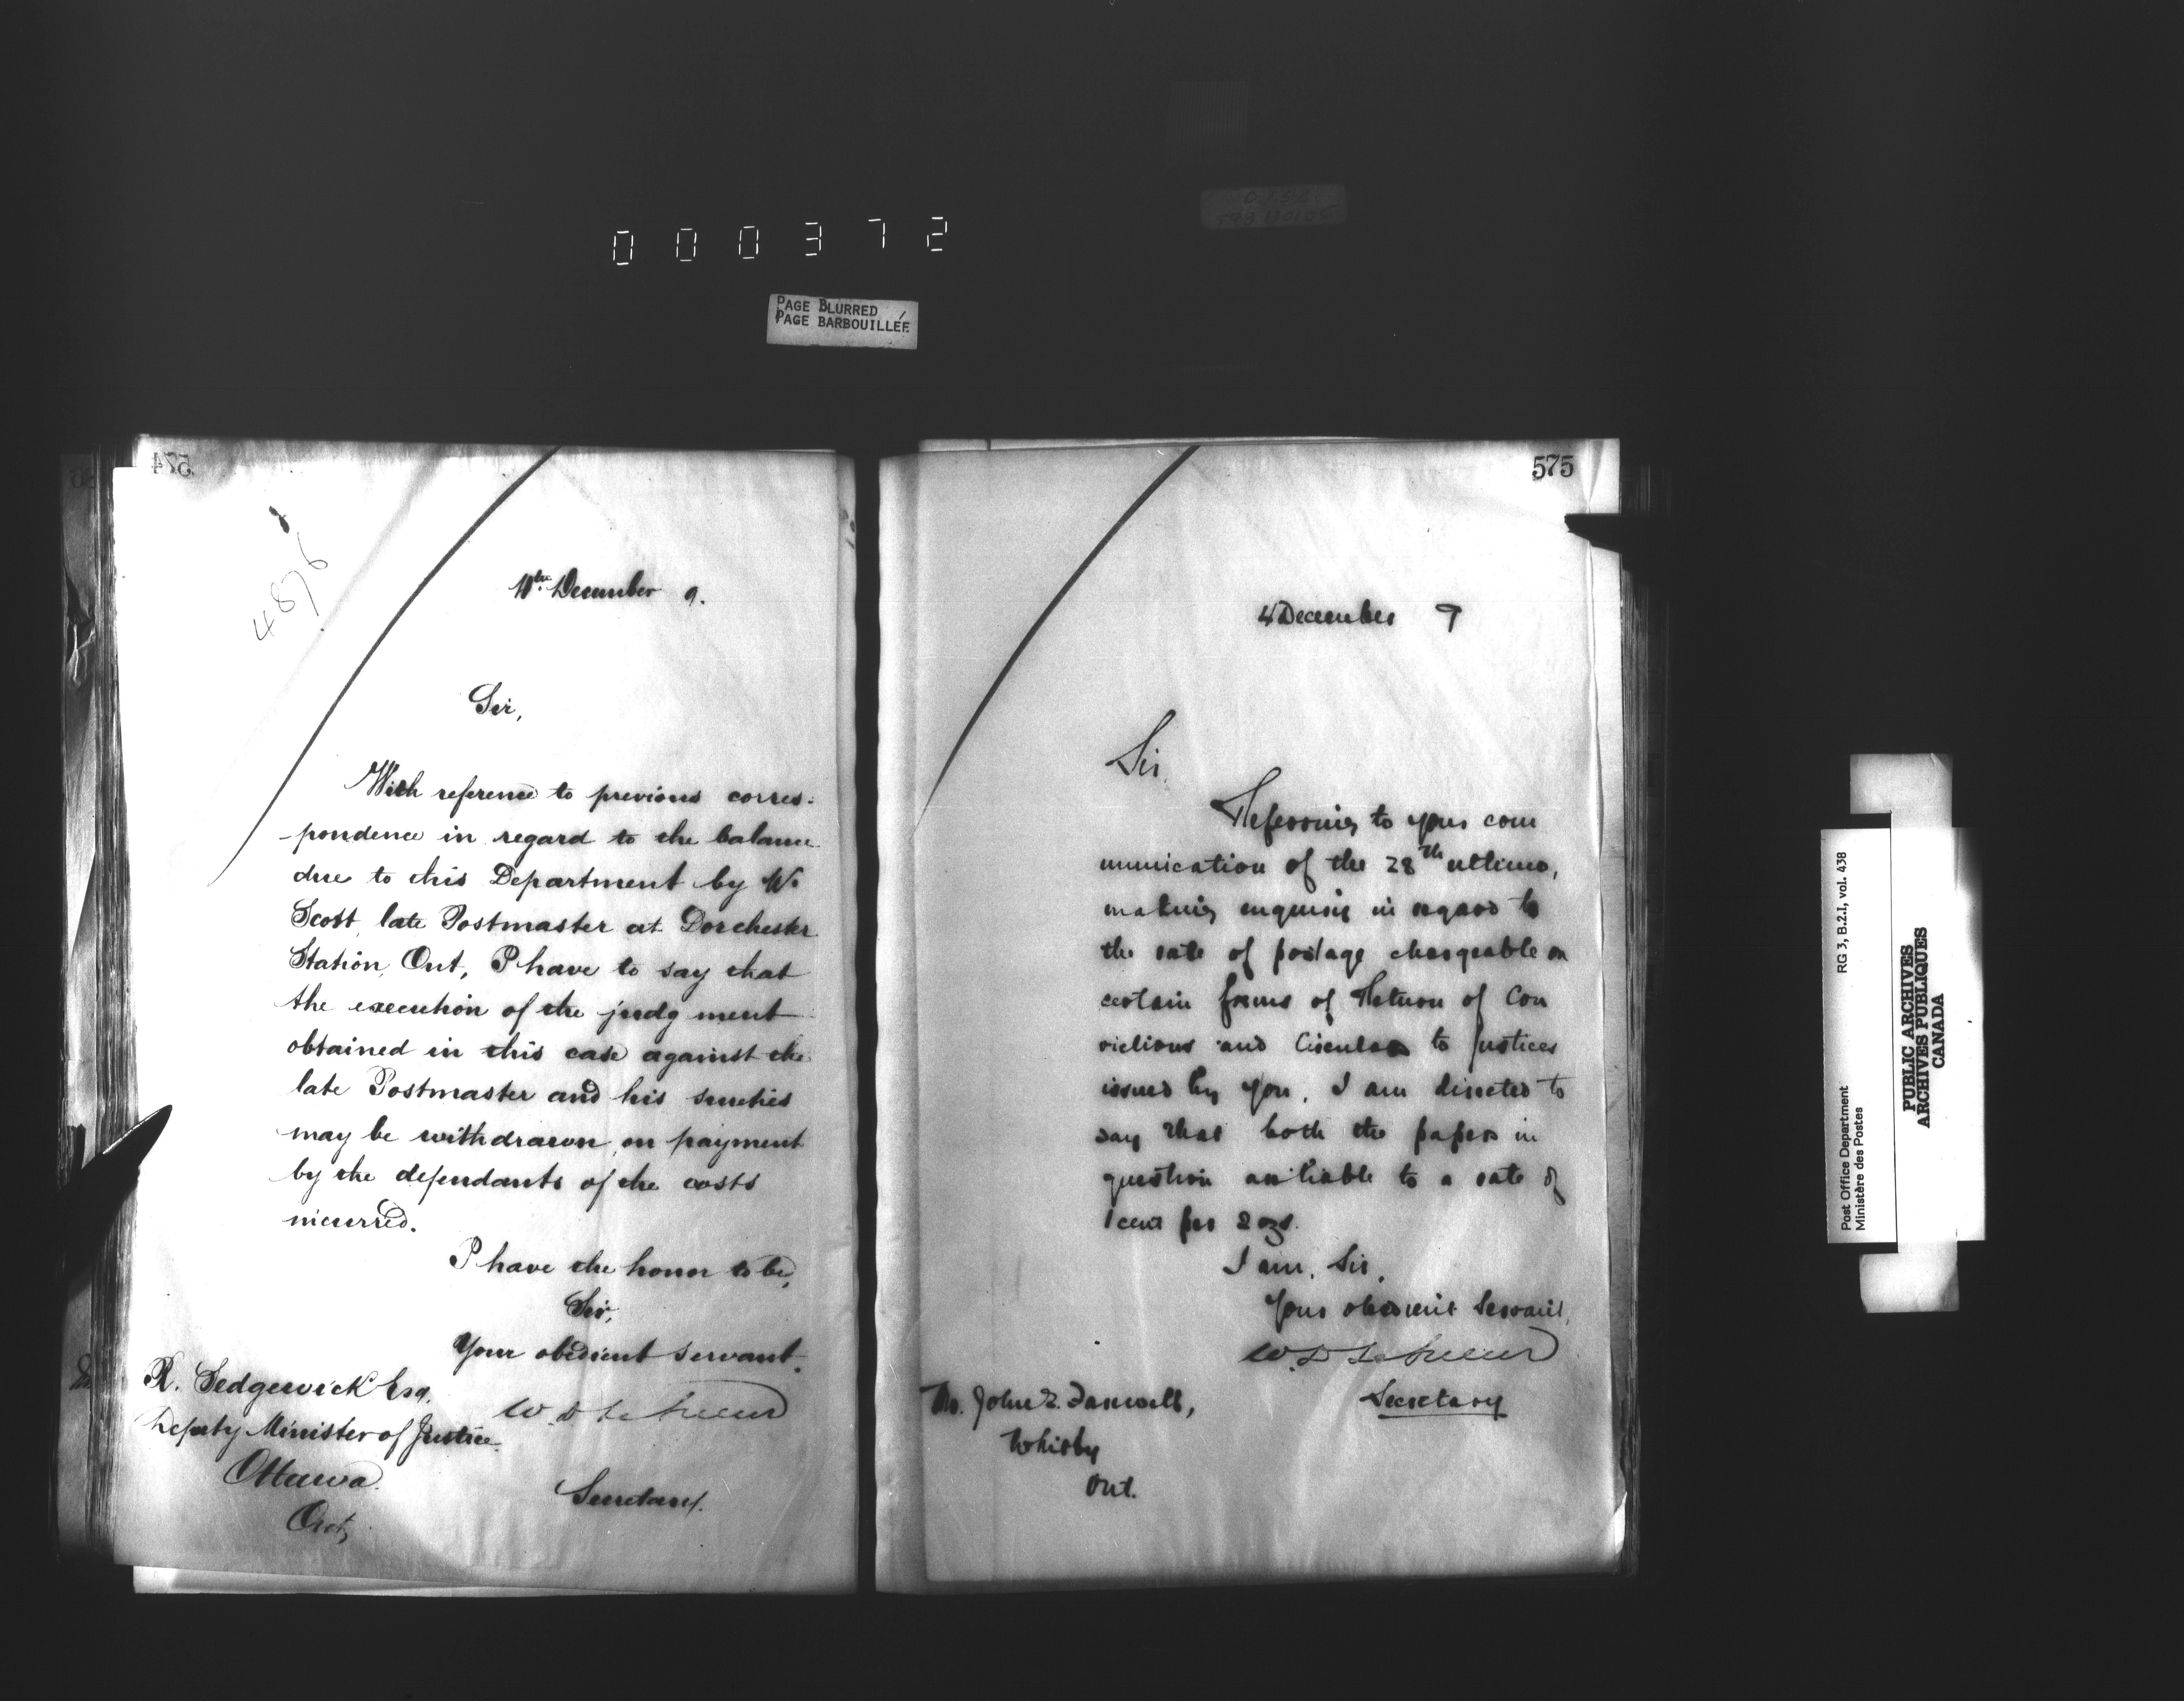 000372
PAGE BLURRED
PAGE BARBOUILLÉE
574
4876
December 9.
Sir,
With reference to previous corres-
pondence in regard to the balance
due to this Department by W.
Scott, late Postmaster at Dorchester
Station, Ont, I have to say that
the execution of the judgment
obtained in this case against the
late Postmaster and his sureties
may be withdrawn on payment
by the defendants of the costs
incurred.
I have the honor to be,
Sir,
Your obedient servant.
W. D. LeSueur
Secretary.
R. Sedgewick Esq.
Deputy Minister of Justice
Ottawa.
Ont,
575
4 December 9
Sir,
Referring to your com
munication of the 28th ultimo,
making enquiry in regard to
the rate of postage chargeable on
certain forms of Return of Con
victions and Circular to Justices
issued by you, I am directed to
say that both the papers in
question are liable to a rate of
1 cent per 2 ozs.
I am, Sir,
Your obedient Servant,
W. D. LeSueur
Secretary
Mr. John E. Farewell,
Whitby
Ont.
Post Office Department RG 3, B.2.I, vol. 438
Ministère des Postes
PUBLIC ARCHIVES
ARCHIVES PUBLIQUES
CANADA